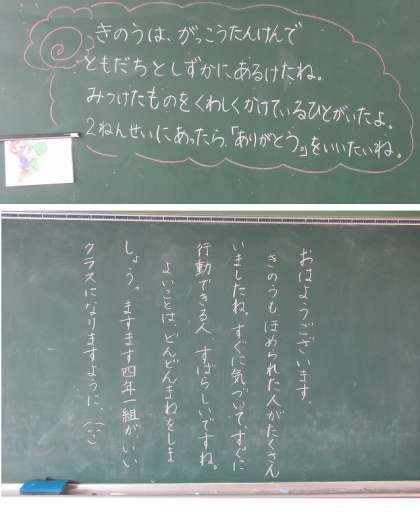 きのうは、がっこうたんけんで
ともだちとしずかにあるけたね。
みつけたものをくわしくかけているひとがいたよ。
2ねんせいにあったら、「ありがとう。」をいいたいね。
おはようございます。
きのうもほめられた人がたくさん
いましたね。すぐに気づいて、すぐに
行動できる人、すばらしいですね。
よいことは、どんどんまねをしま
しょう。ますます四年一組が、いい
クラスになりますように、